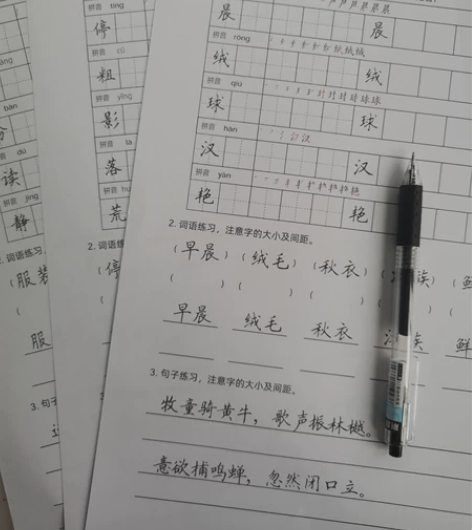 晨 晨
拼音 róng
绒 绒
拼音 qiú
球 球
拼音 hàn
汉 汉
拼音 yàn
艳 艳
2. 词语练习，注意字的大小及间距。
（早晨）（绒毛）（秋衣）
早晨 绒毛 秋衣 鲜
3. 句子练习，注意字的大小及间距。
牧童骑黄牛，歌声振林樾。
意欲捕鸣蝉，忽然闭口立。
拼音 tíng
停
拼音 cū
粗
拼音 yǐng
影
拼音
落
拼音
荒
2. 词语
（停
3. 句
读
静
词语练习
（服装
服
3. 句子